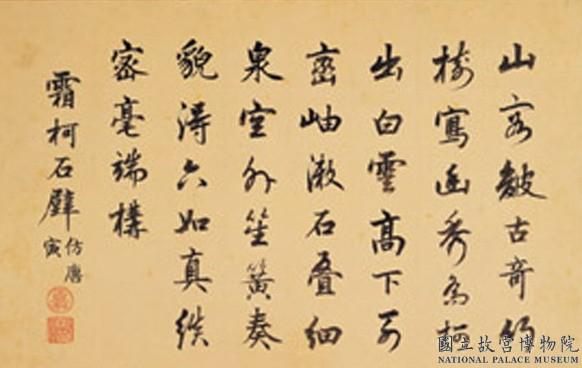 山容皴古奇
樹寫幽秀喬柯
出白雲高下
巒岫漱石疊細
泉空外笙簧奏
貌得六如真
密毫端構
霜柯石壁
仿唐
寅
國立故宮博物院
NATIONAL PALACE MUSEUM